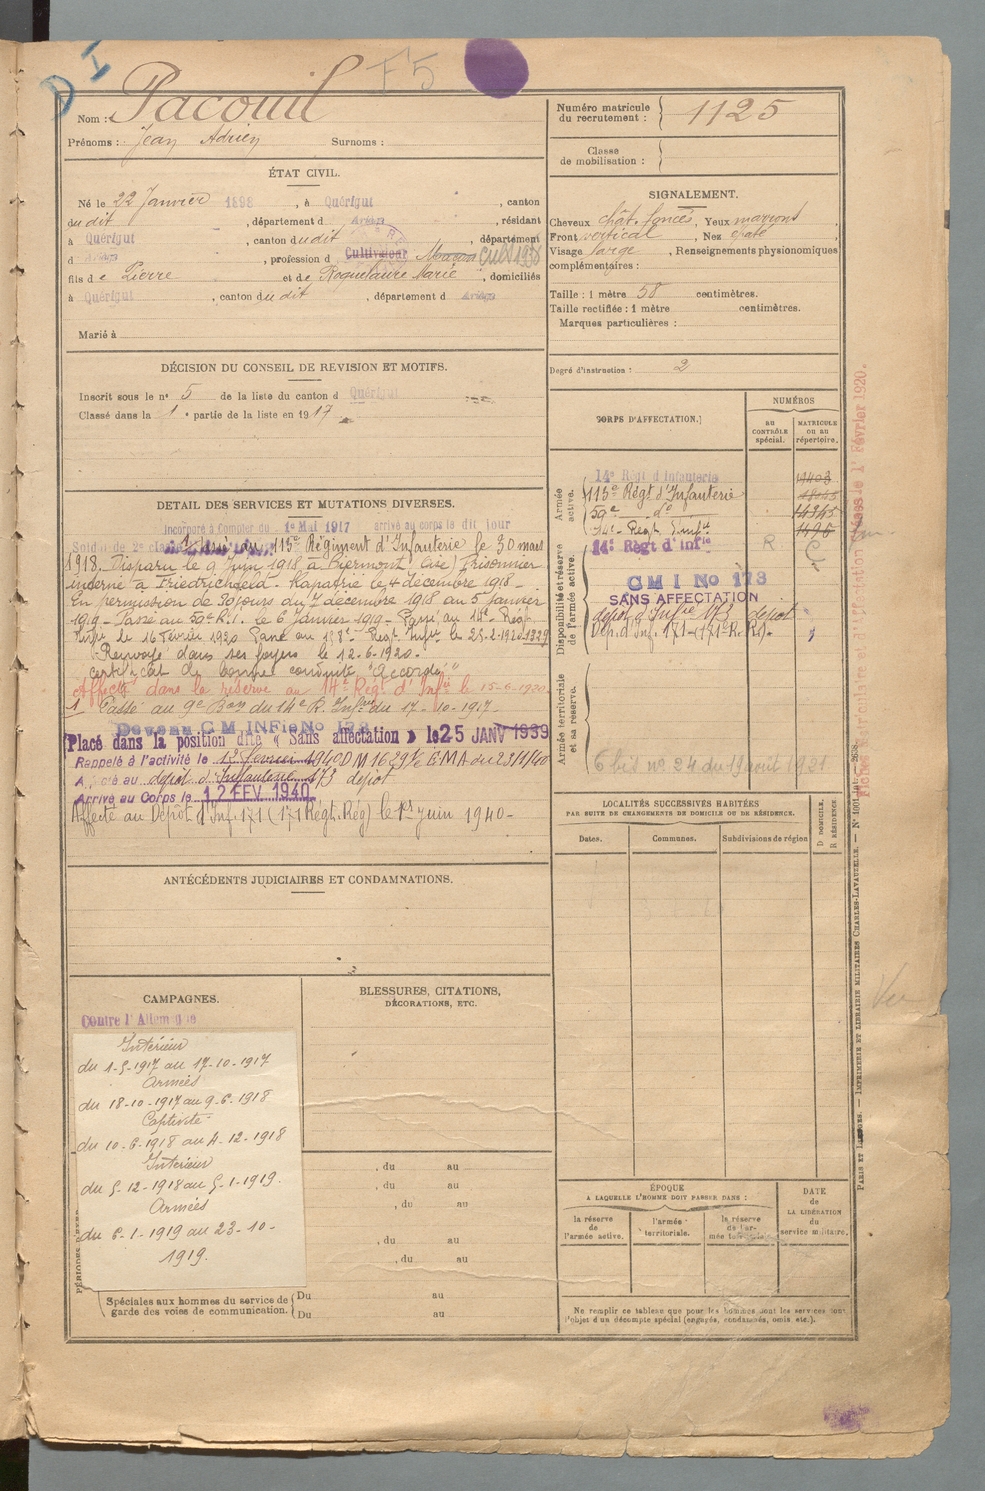 D I
F5
Nom : Pacouil
Prénoms : Jean Adrien Surnoms :
ÉTAT CIVIL.
Né le 22 Janvier 1898, à Quérigut, canton
du dit, département d Ariège, résidant
à Quérigut, canton du dit, département
d Ariège, profession d Cultivateur Maçon Cult 1938
fils de Pierre et de Roquelaure Marie, domiciliés
à Quérigut, canton du dit, département d Ariège
Marié à
DÉCISION DU CONSEIL DE REVISION ET MOTIFS.
Inscrit sous le n° 5 de la liste du canton d Quérigut
Classé dans la 1e partie de la liste en 1917
DÉTAIL DES SERVICES ET MUTATIONS DIVERSES.
Incorporé à Compter du 1e Mai 1917 arrivé au corps le dit jour
Soldat de 2e classe Passé au 113e Régiment d'Infanterie le 30 mars
1918. Disparu le 9 Juin 1918 à Biermont (Oise) Prisonnier
interné à Friedrichsfeld. Rapatrié le 4 décembre 1918 -
En permission de 30 jours du 7 décembre 1918 au 5 Janvier
1919 - Passé au 59e R.I. le 6 Janvier 1919 - Passé au 14e Régt
Infie le 16 Février 1920 Passé au Regt Infie le 25-2-1920
Renvoyé dans ses foyers le 12-6-1920.
certificat de bonne conduite "Accordé"
Affecté dans la réserve au 14e Régt d'Infie le 15-6-1920
1. Passé au 9e Bon du 14e R. Infie du 17-10-1917 -
Devenu C M INFie No 173
Placé dans la position dite « Sans affectation » le 25 JANV 1939
Rappelé à l'activité le 12 février 1940 DM 1629 1/c EMA du 23/1/40
au dépôt d'Infanterie 173 dépôt
Arrivé au Corps le 12 FEV. 1940
Affecté au Dépôt d'Inf. 171 (171 Régt. Rég) le 1er juin 1940 -
ANTÉCÉDENTS JUDICIAIRES ET CONDAMNATIONS.
CAMPAGNES.
Contre l'Allemagne
Intérieur
du 1-5-1917 au 17-10-1917
Armées
du 18-10-1917 au 9-6-1918
Captivité
du 10-6-1918 au 4-12-1918
Intérieur
du 5-12-1918 au 5-1-1919.
Armées
du 6-1-1919 au 23-10-
1919.
BLESSURES, CITATIONS,
DÉCORATIONS, ETC.
, du au
, du au
, du au
, du au
, du au
Spéciales aux hommes du service de
garde des voies de communication.
Du au
Du au
Numéro matricule
du recrutement : 1125
Classe
de mobilisation :
SIGNALEMENT.
Cheveux chât. foncés, Yeux marrons
Front vertical, Nez épaté,
Visage large, Renseignements physionomiques
complémentaires :
Taille : 1 mètre 58 centimètres.
Taille rectifiée : 1 mètre centimètres.
Marques particulières :
Degré d'instruction : 2
CORPS D'AFFECTATION.
NUMÉROS
AU CONTRÔLE spécial.
MATRICULE OU AU répertoire.
Armée active.
14e Régt d'Infanterie
113e Régt d'Infanterie
59e do 14345
Regt Infie 1496
Disponibilité et réserve de l'armée active.
14e Régt d'Infie R.
C M I No 173
SANS AFFECTATION
dépôt d'Infie 173 dépôt
Dép. d'Inf. 171 - (171e R. R).
Armée territoriale et sa réserve.
6 bis no 24 du 19 août 1921
LOCALITÉS SUCCESSIVES HABITÉES
PAR SUITE DE CHANGEMENTS DE DOMICILE OU DE RÉSIDENCE.
Dates. Communes. Subdivisions de région
D DOMICILE.
R RÉSIDENCE
ÉPOQUE
A LAQUELLE L'HOMME DOIT PASSER DANS :
la réserve de l'armée active.
l'armée territoriale.
la réserve de l'armée territoriale.
DATE
de
LA LIBÉRATION
du
service militaire.
Ne remplir ce tableau que pour les hommes dont les services font
l'objet d'un décompte spécial (engagés, condamnés, omis etc.).
PARIS ET LIMOGES. — IMPRIMERIE ET LIBRAIRIE MILITAIRES CHARLES-LAVAUZELLE.
Vu